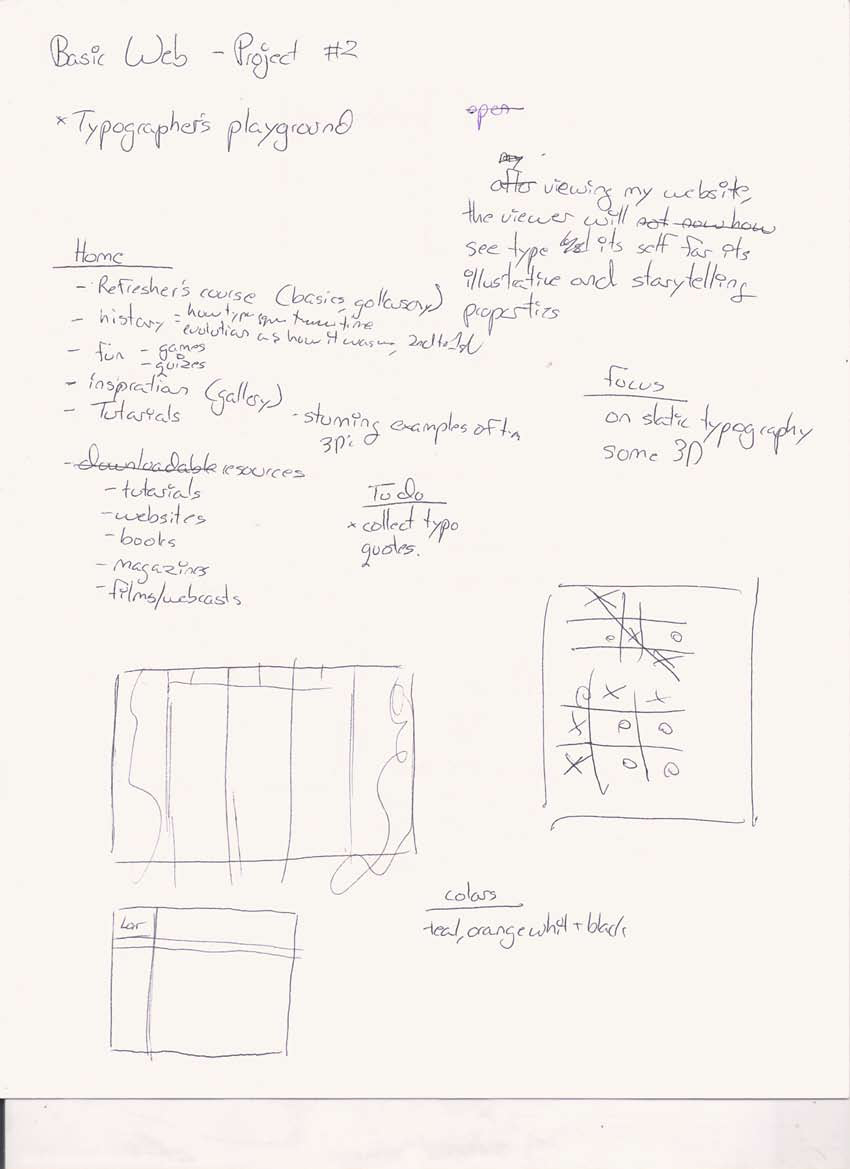 Basic Web - Project #2
* Typographer's playground
open
after viewing my website,
the viewer will not now how
see type its self for its
illustrative and storytelling
properties
Home
- Refresher's course (basics, gollausory)
- history = how type thru time
evolution as how it was 2nd to
- fun - games
- quizes
- inspiration (gallery)
- Tutorials
- stunning examples of
3D
- downloadable resources
- tutorials
- websites
- books
- magazines
- films/webcasts
Focus
on static typography
some 3D
To do
* collect typo
quotes.
X
o X o
X
O X X
X O O
X O O
colors
teal, orange whit + black